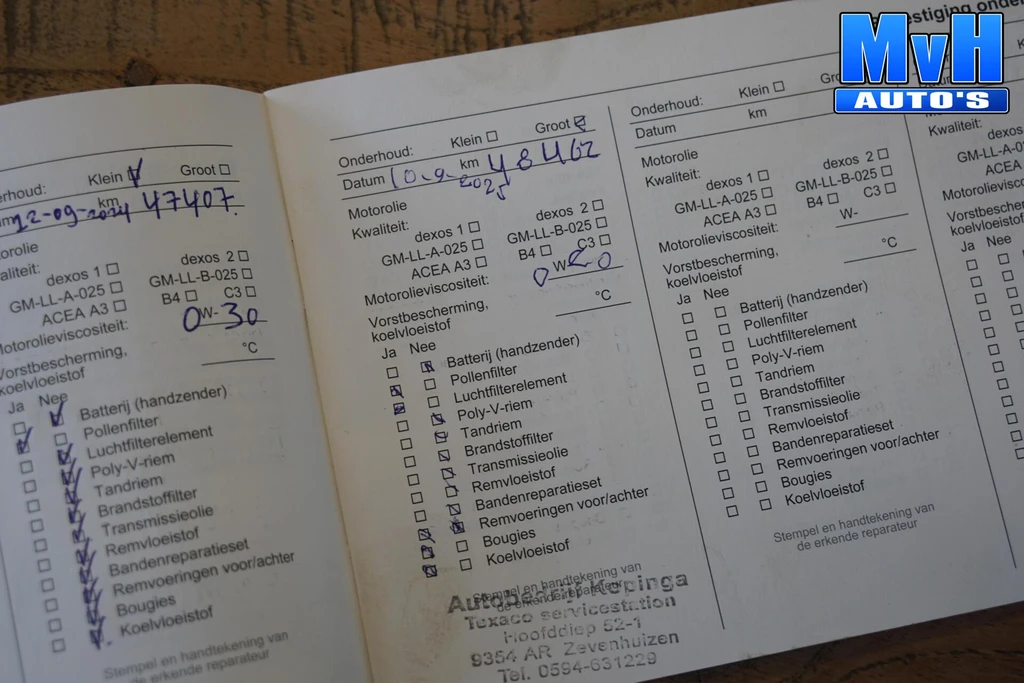 MvH
AUTO'S
Klein Groot
12-09-2024 km 47407.
dexos 1 dexos 2
GM-LL-A-025 GM-LL-B-025
ACEA A3 B4 C3
0W-30
Vorstbescherming,
koelvloeistof °C
Ja Nee
Batterij (handzender)
Pollenfilter
Luchtfilterelement
Poly-V-riem
Tandriem
Brandstoffilter
Transmissieolie
Remvloeistof
Bandenreparatieset
Remvoeringen voor/achter
Bougies
Koelvloeistof
Stempel en handtekening van
de erkende reparateur
Onderhoud: Klein Groot
Datum 10-9-2025 km 48462
Motorolie
Kwaliteit: dexos 1 dexos 2
GM-LL-A-025 GM-LL-B-025
ACEA A3 B4 C3
Motorolieviscositeit: 0 W 20
Vorstbescherming,
koelvloeistof °C
Ja Nee
Batterij (handzender)
Pollenfilter
Luchtfilterelement
Poly-V-riem
Tandriem
Brandstoffilter
Transmissieolie
Remvloeistof
Bandenreparatieset
Remvoeringen voor/achter
Bougies
Koelvloeistof
Stempel en handtekening van
de erkende reparateur
Autobedrijf Kopinga
Texaco servicestation
Hoofddiep 52-1
9354 AR Zevenhuizen
Tel. 0594-631229
Onderhoud: Klein
Datum km
Motorolie
Kwaliteit: dexos 1 dexos 2
GM-LL-A-025 GM-LL-B-025
ACEA A3 B4 C3
Motorolieviscositeit: W-
Vorstbescherming,
koelvloeistof °C
Ja Nee
Batterij (handzender)
Pollenfilter
Luchtfilterelement
Poly-V-riem
Tandriem
Brandstoffilter
Transmissieolie
Remvloeistof
Bandenreparatieset
Remvoeringen voor/achter
Bougies
Koelvloeistof
Stempel en handtekening van
de erkende reparateur
Kwaliteit: dexos
GM-LL-A
ACEA
Ja Nee